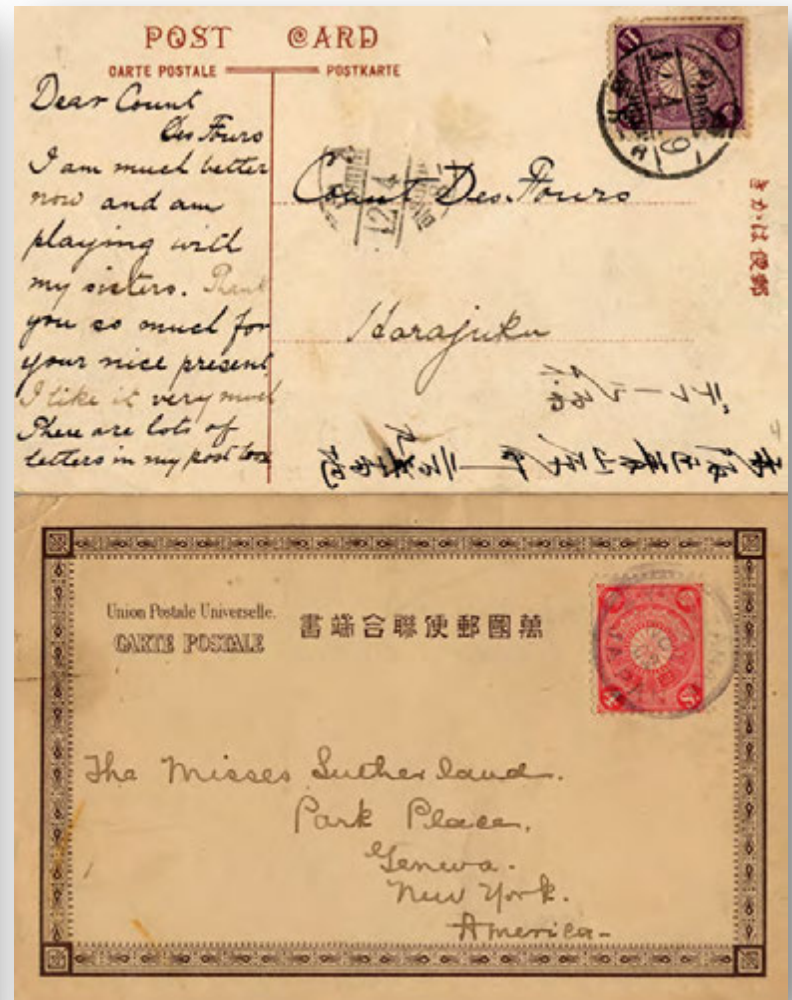 POST CARD
CARTE POSTALE
POSTKARTE
Dear Count
Des Fours
I am much better
now and am
playing with
my sisters. Thank
you so much for
your nice present
I like it very much
There are lots of
letters in my post box
Count Des Fours
Harajuku
郵便はかき
Union Postale Universelle.
CARTE POSTALE
萬國郵便聯合端書
The Misses Sutherland.
Park Place,
Geneva.
New York.
America-